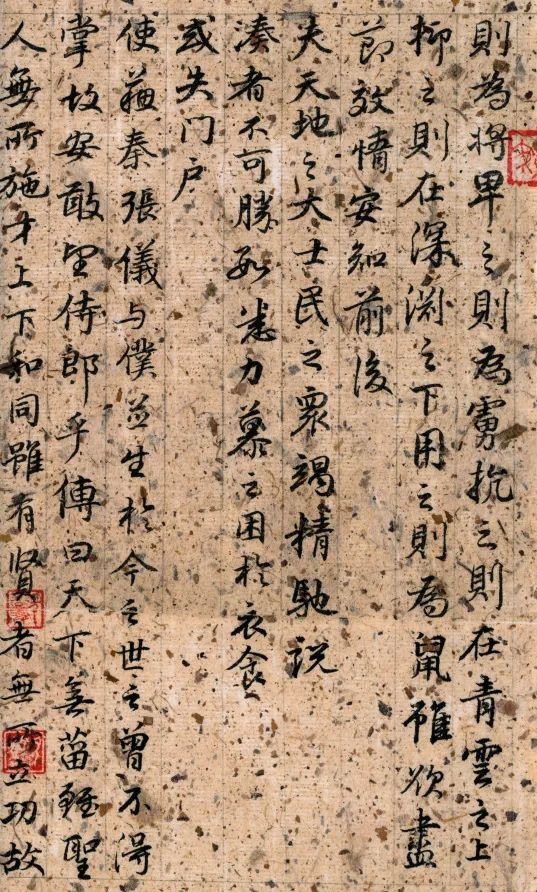 則為將卑之則為虜抗之則在青雲之上
抑之則在深淵之下用之則為鼠雖欲盡
節效情安知前後
夫天地之大士民之眾竭精馳説
湊者不可勝數悉力慕之困於衣食
或失门户
使蘇秦張儀与僕並生於今之世之曾不得
掌故安敢望侍郎乎傳曰天下無菑雖聖
人無所施才上下和同雖有贤者無所立功故